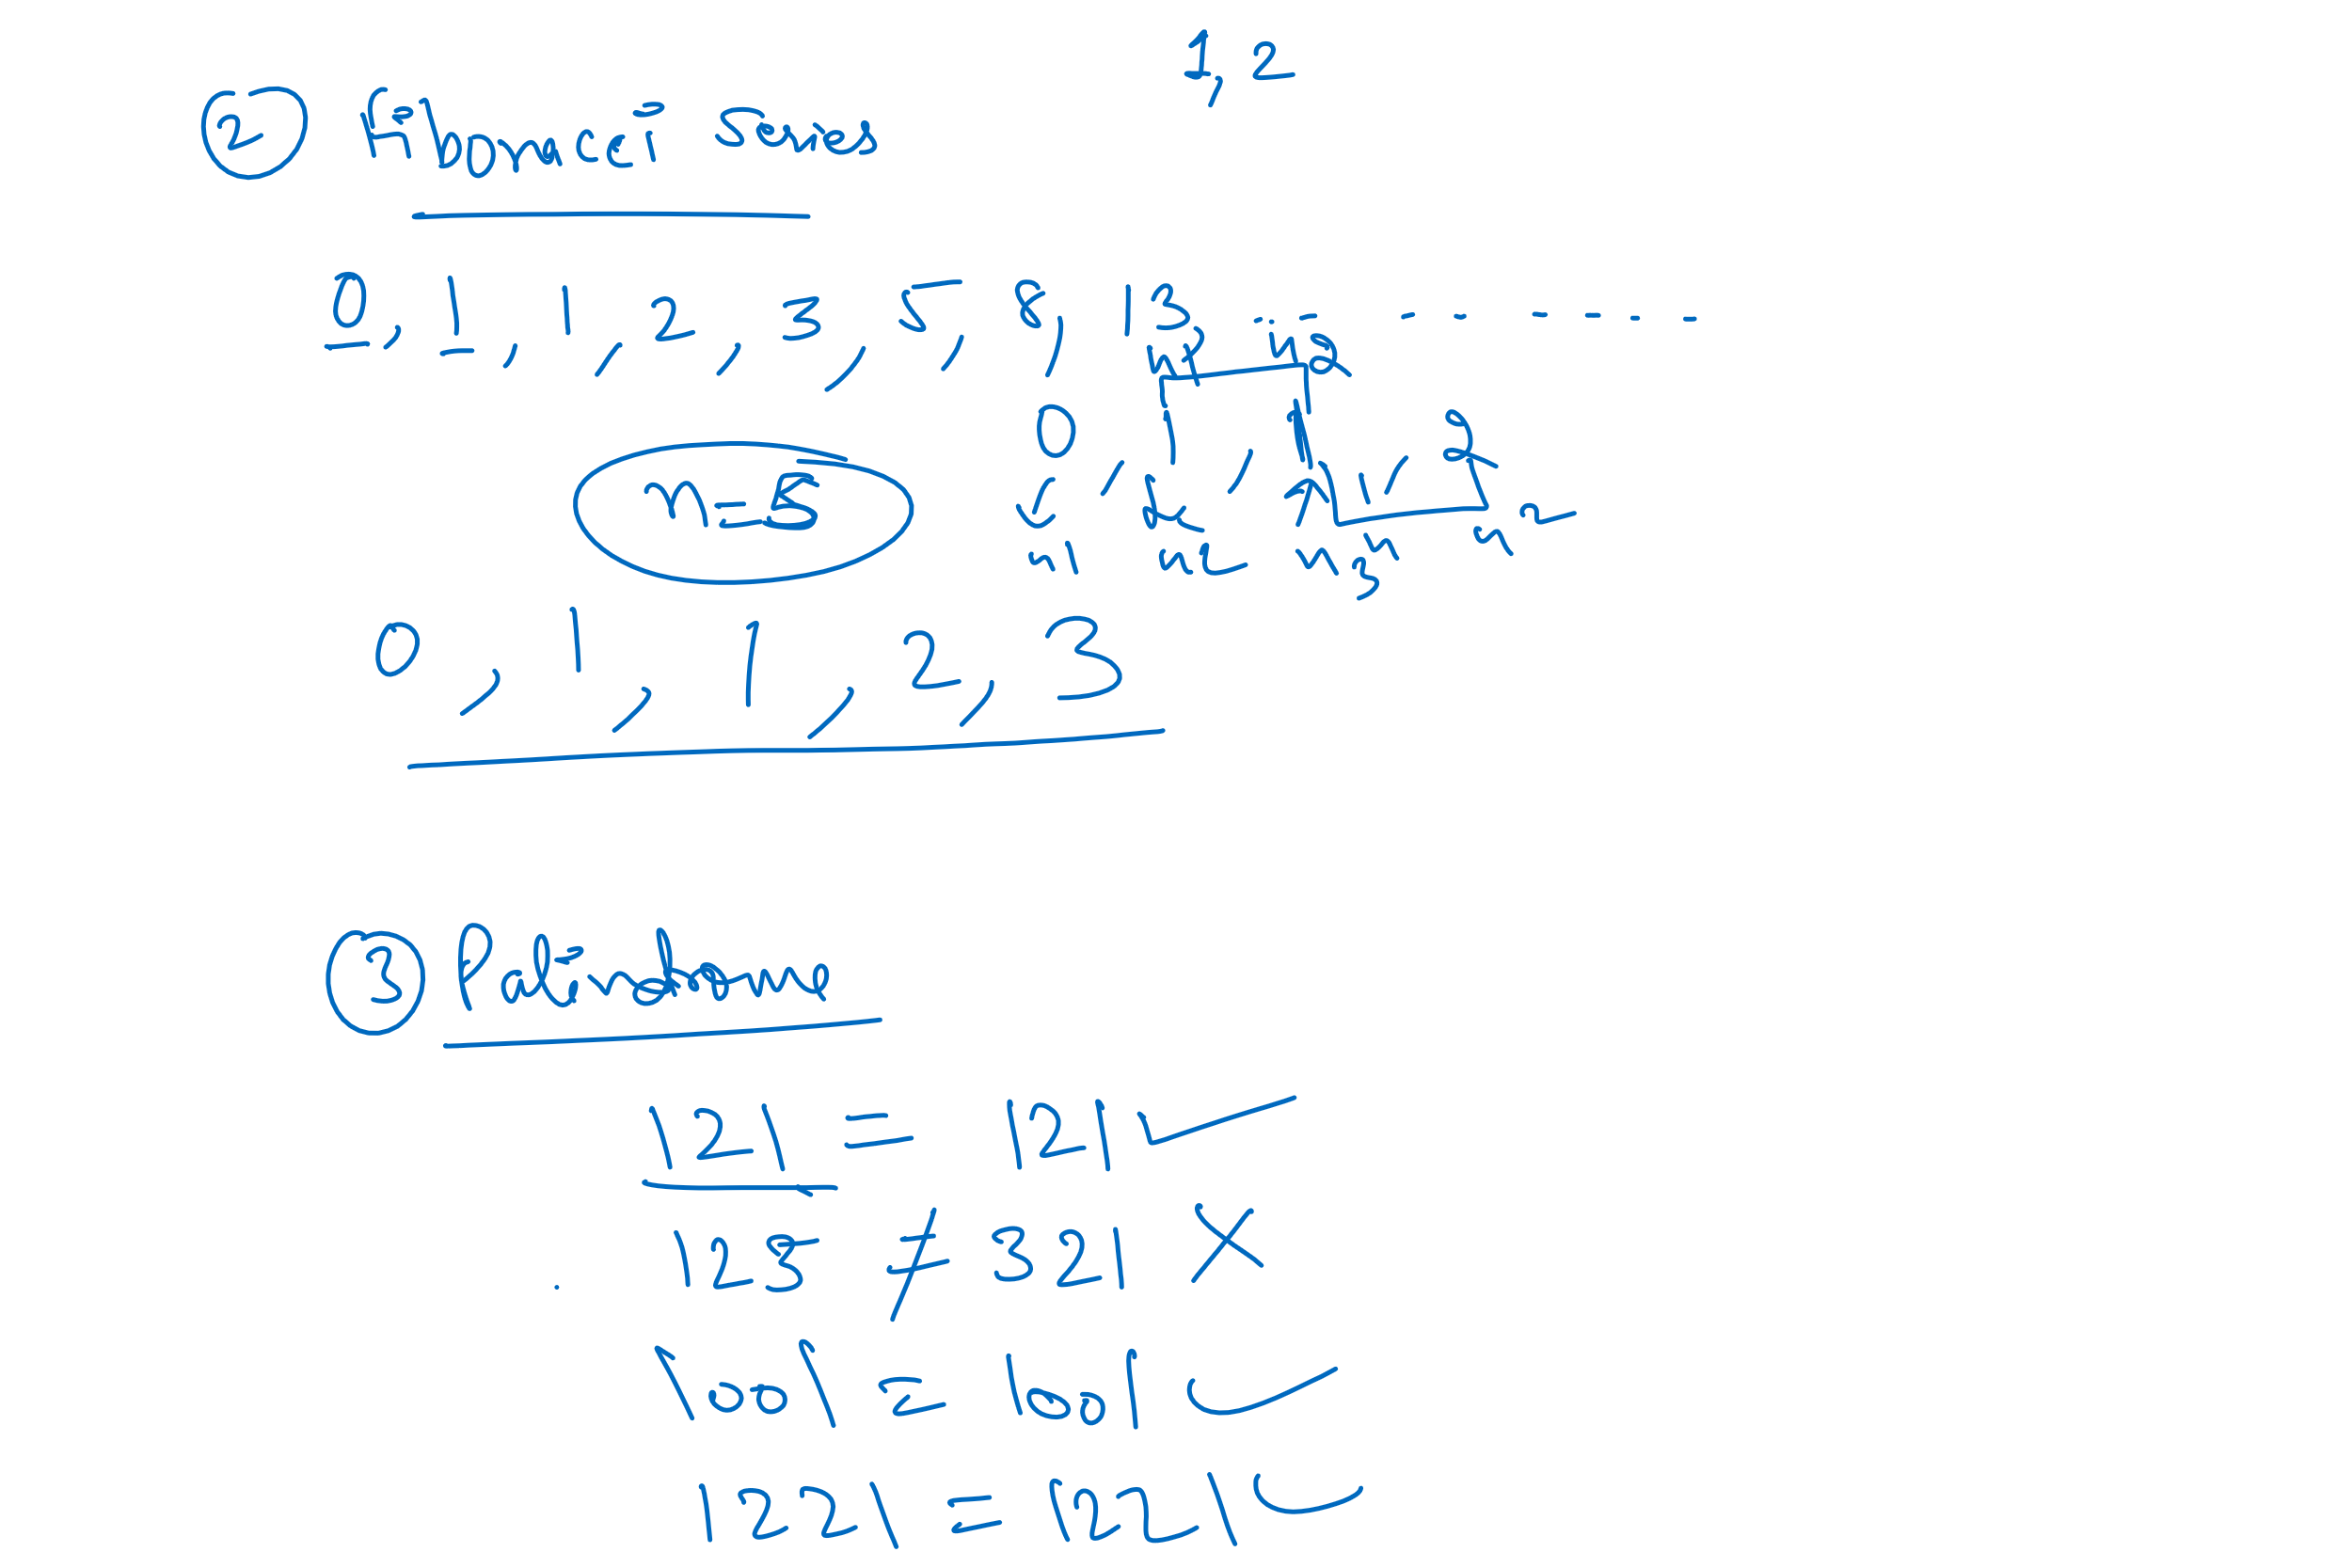 1, 2
② Fibonacci Series
0, 1, 1, 2, 3, 5, 8, 13 - - - - - - - -
n1 n2
0, 1, 1, 2
n=5
n1 n2 n3 n2
0, 1, 1, 2, 3
③ Palindrome
121 = 121 ✓
123 ≠ 321 X
1001 = 1001 ✓
1221 = 1221 ✓